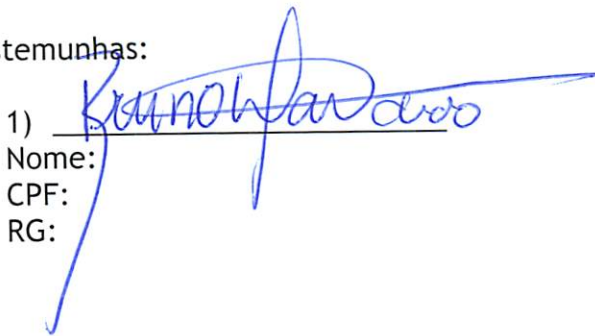 stemunhas:
1)
Nome:
CPF:
RG: